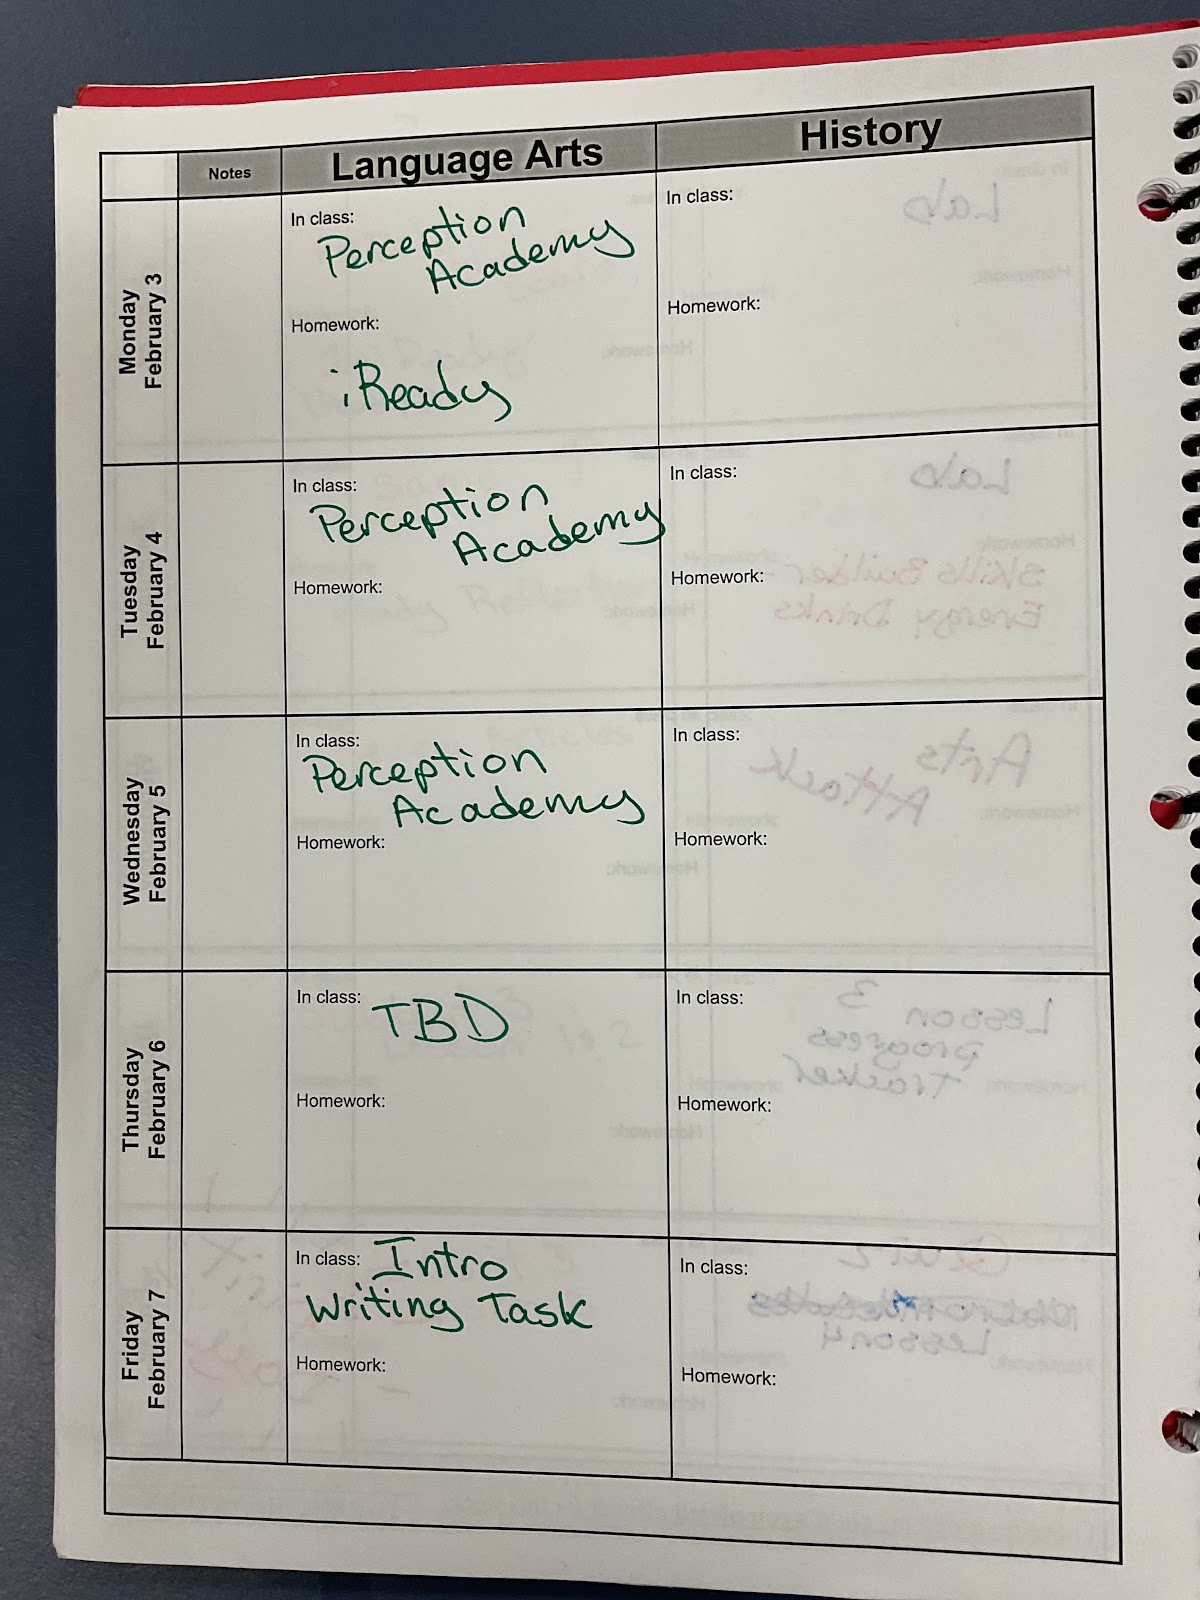 Notes
Language Arts
History
Monday
February 3
In class:
Perception
Academy
Homework:
iReady
In class:
Homework:
Tuesday
February 4
In class:
Perception
Academy
Homework:
In class:
Homework:
Wednesday
February 5
In class:
Perception
Academy
Homework:
In class:
Homework:
Thursday
February 6
In class: TBD
Homework:
In class:
Homework:
Friday
February 7
In class: Intro
Writing Task
Homework:
In class:
Homework:
Lab
Lab
Skills Builder
Energy Drinks
Arts
Attack
Lesson 3
progress
tracker
Quiz
Lesson 4